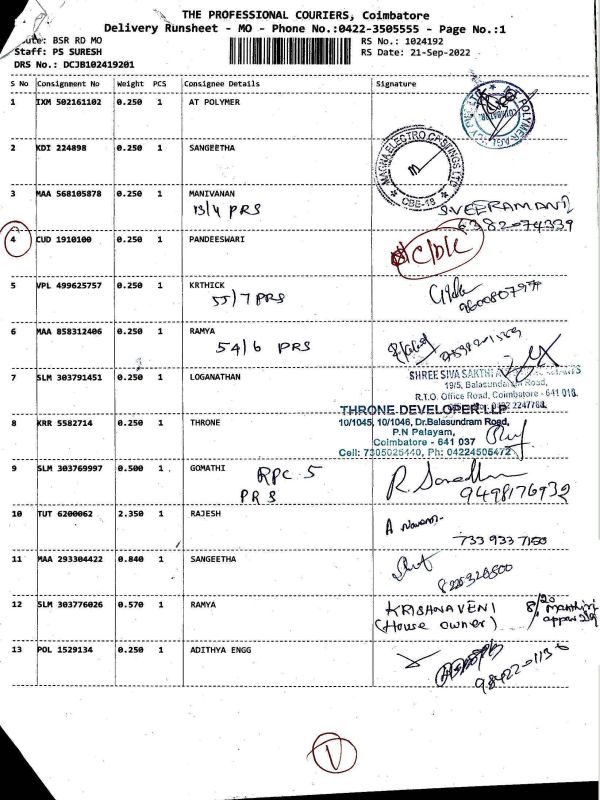 THE PROFESSIONAL COURIERS, Coimbatore
Delivery Runsheet - MO - Phone No.:0422-3505555 - Page No.:1
BSR RD MO
RS No.: 1024192
Staff: PS SURESH
RS Date: 21-Sep-2022
DRS No.: DCJB102419201
S No Consignment No Weight PCS Consignee Details Signature
1 IXM 502161102 0.250 1 AT POLYMER
2 KDI 224898 0.250 1 SANGEETHA
MAGNA ELECTRO CASTINGS LTD
CBE-18
3 MAA 568105878 0.250 1 MANIVANAN
13/4 PRS
S.VEERAMANI
6382074339
4 CUD 1910100 0.250 1 PANDEESWARI
C/D/L
5 VPL 499625757 0.250 1 KRTHICK
55/7 PRS
6 MAA 858312406 0.250 1 RAMYA
54/6 PRS
7 SLM 303791451 0.250 1 LOGANATHAN
SHREE SIVA SAKTHI
19/5, Balasundaram Road,
R.T.O. Office Road, Coimbatore - 641 018.
8 KRR 5582714 0.250 1 THRONE
THRONE DEVELOPER LLP
10/1045, 10/1046, Dr.Balasundram Road,
P.N Palayam,
Coimbatore - 641 037
Cell: 7305025440, Ph: 04224505472
9 SLM 303769997 0.500 1 GOMATHI
RPC 5
PRS
9498176932
10 TUT 6200062 2.350 1 RAJESH
733 933 7150
11 MAA 293304422 0.840 1 SANGEETHA
12 SLM 303776026 0.570 1 RAMYA
KRISHNAVENI
(House owner)
8/20
13 POL 1529134 0.250 1 ADITHYA ENGG